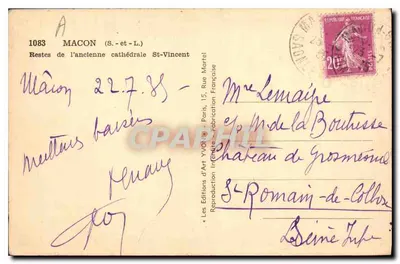 A
1083 MACON (S.-et-L.)
Restes de l'ancienne cathédrale St-Vincent
Mâcon 22.7.35 -
meilleurs baisers
« Les Editions d'Art YVON » Paris, 15, Rue Martel
Reproduction interdite. Fabrication Française
20
Mme Lemaire
c/o M. de la Boutresse
Chateau de Grosmesnil
St Romain-de-Colbosc
Seine Infre
CPARAMA